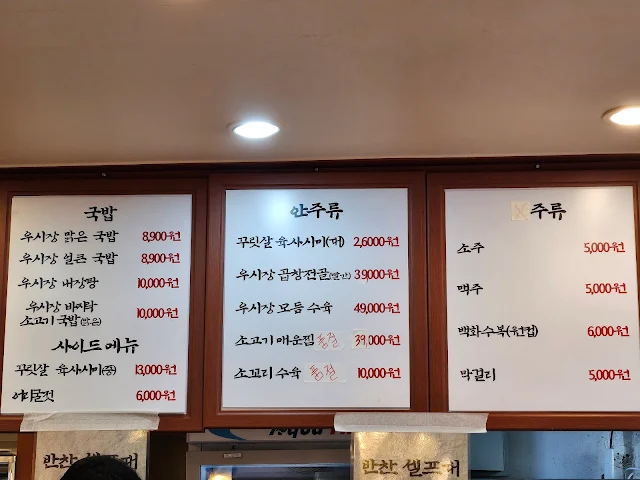 국밥
우시장 맑은 국밥 8,900원
우시장 얼큰 국밥 8,900원
우시장 내장탕 10,000원
우시장 바지락
소고기 국밥(맑은) 10,000원
사이드 메뉴
꾸릿살 육사시미(중) 13,000원
어리굴젓 6,000원
안주류
꾸릿살 육사시미(대) 2,6000원
우시장 곱창전골(얼큰) 39,000원
우시장 모듬 수육 49,000원
소고기 매운찜 품절 39,000원
소꼬리 수육 품절 10,000원
주류
소주 5,000원
맥주 5,000원
백화수복(원컵) 6,000원
막걸리 5,000원
반찬 셀프대
반찬 셀프대